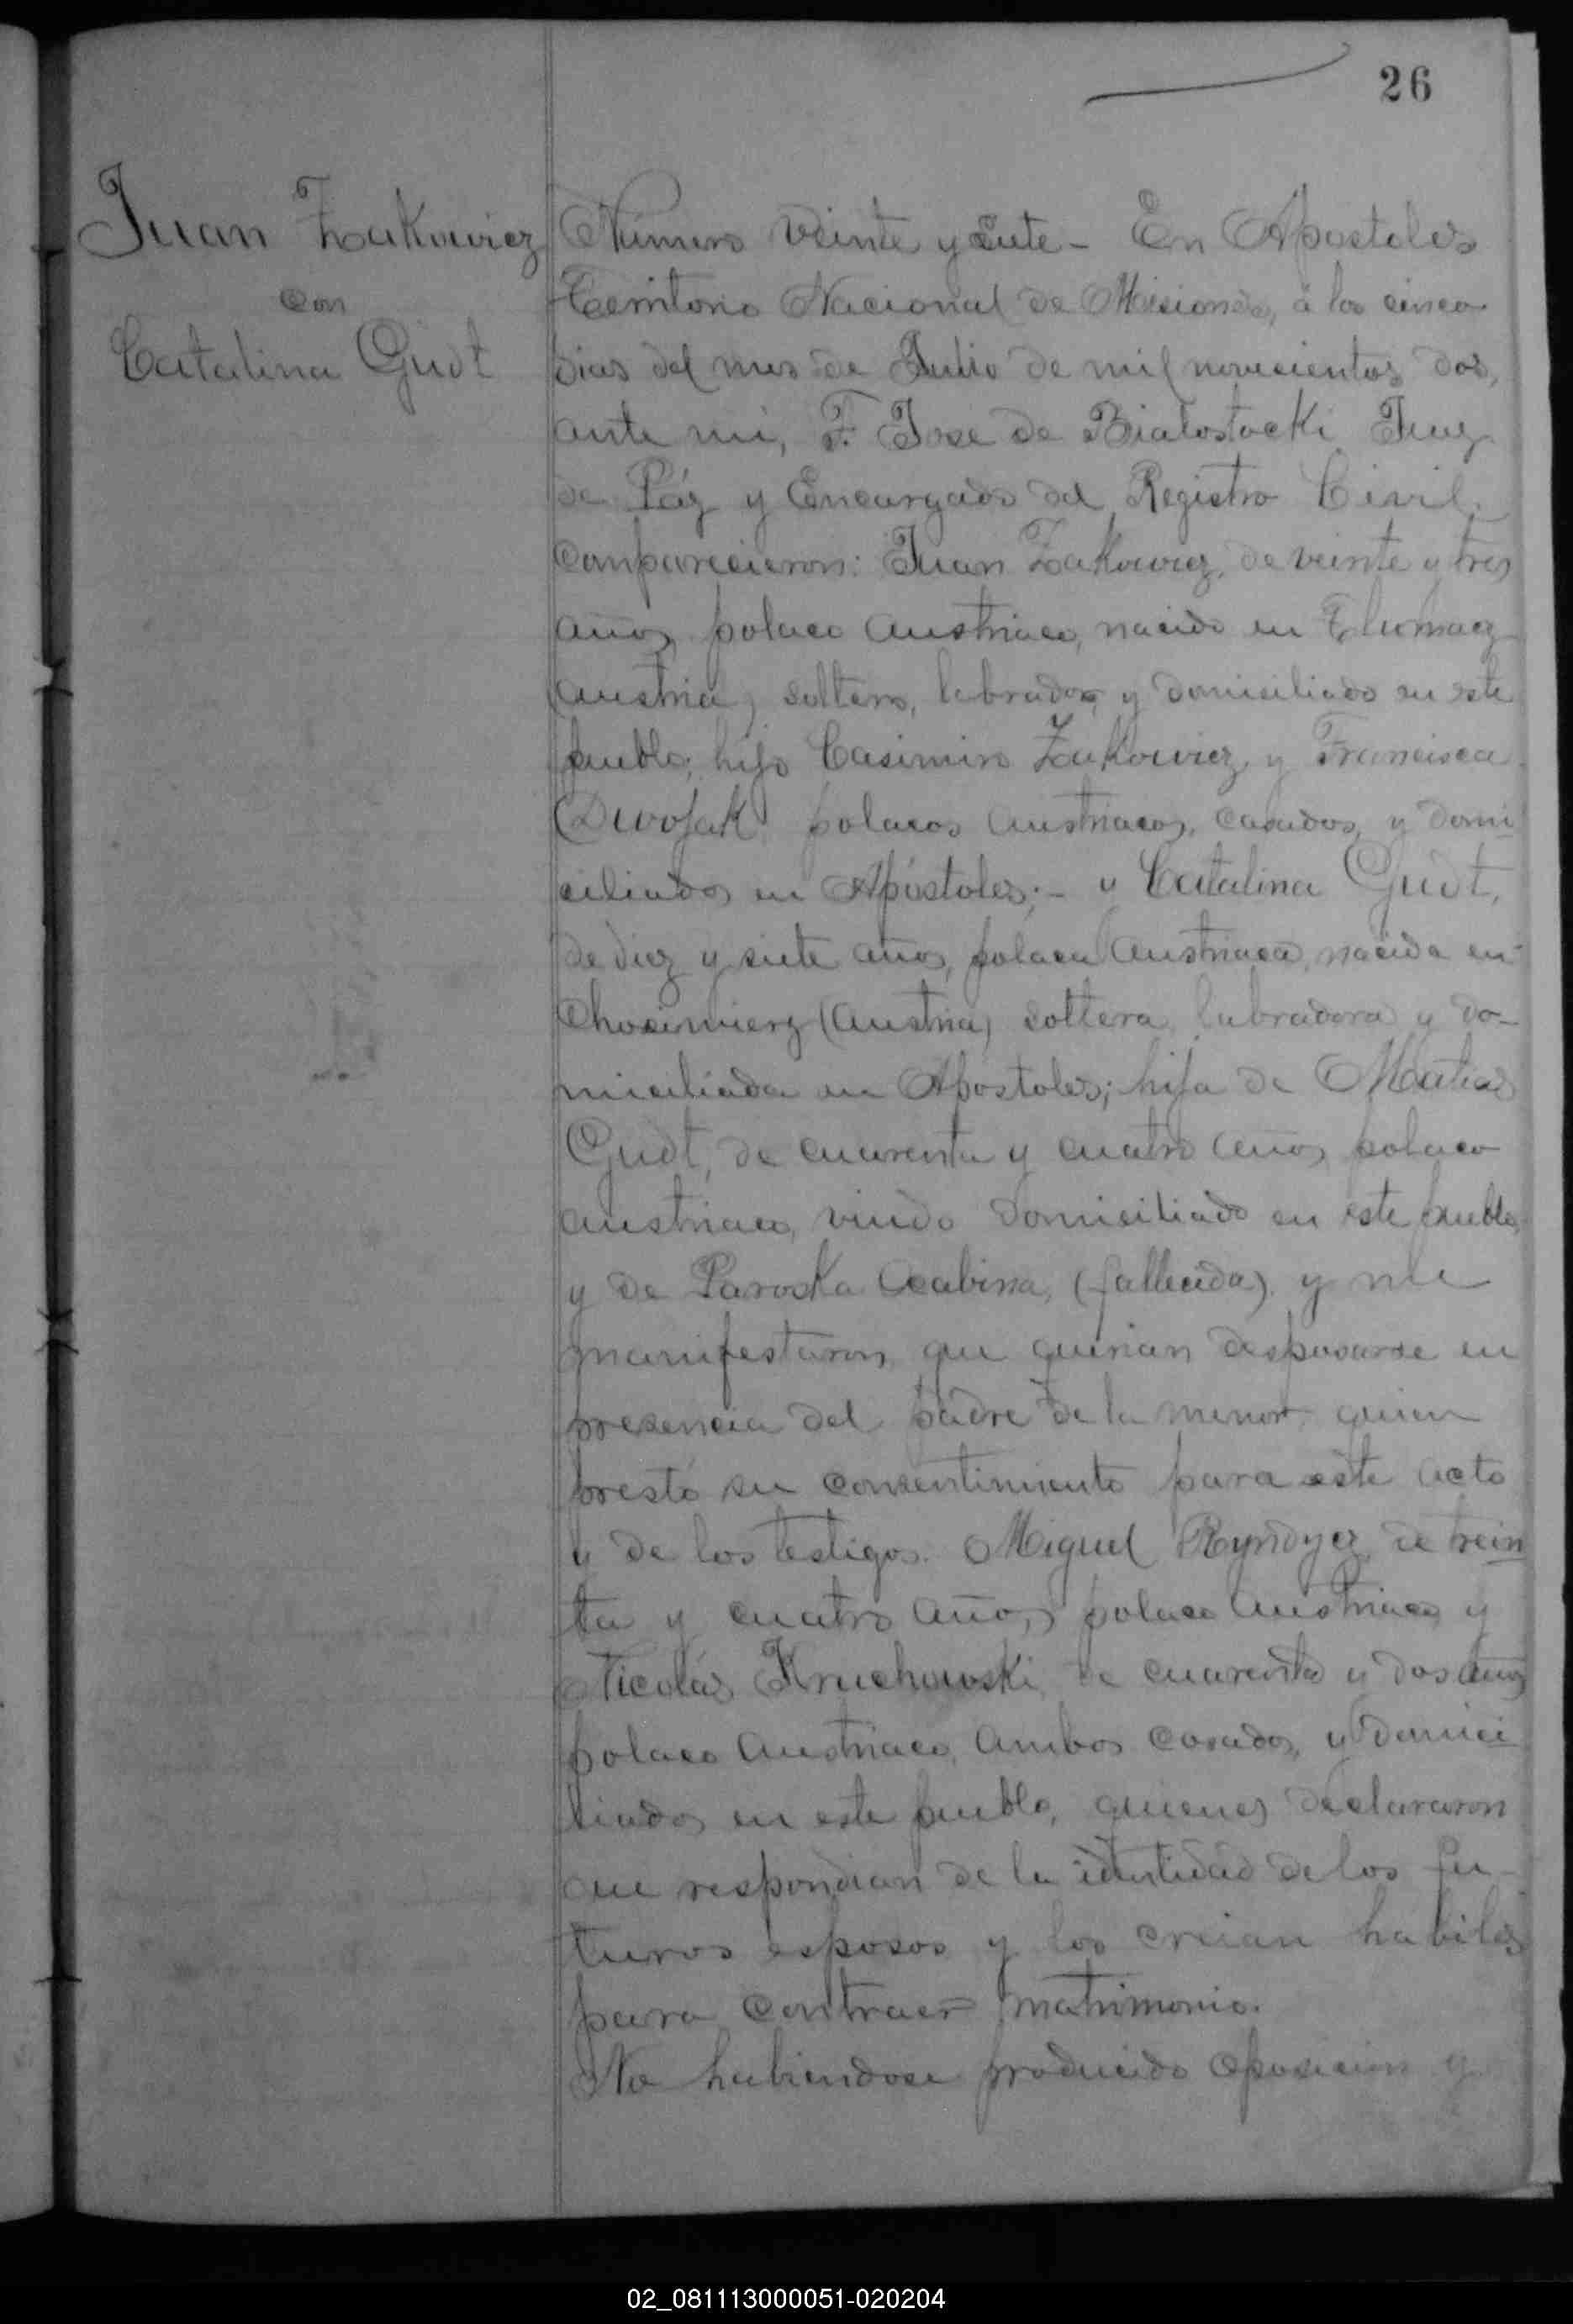 26
Juan Zukowicz
con
Catalina Gudt
Número Veinte y siete - En Apostoles
Territorio Nacional de Misiones, á los cinco
dias del mes de Julio de mil novecientos dos,
ante mi, F. Jose de Bialostocki Juez
de Páz y Encargado del Registro Civil,
comparecieron: Juan Zukowicz, de veinte y tres
años, polaco austriaco, nacido en Tlumacz
(Austria) soltero, labrador, y domiciliado en este
pueblo, hijo Casimiro Zukowicz y Francisca
Dwojak polacos austriacos, casados, y domi
ciliados en Apóstoles; - y Catalina Gudt,
de diez y siete años, polaca austriaca, nacida en
Chocimierz (Austria) soltera, labradora y do-
miciliada en Apostoles; hija de Matias
Gudt, de cuarenta y cuatro años, polaco
austriaco, viudo domiciliado en este pueblo,
y de Paroska (fallecida) y me
manifestaron que querian desposarse en
presencia del padre de la menor quien
prestó su consentimiento para este acto
y de los testigos. Miguel Ryndycz, de trein
ta y cuatro años, polaco austriaco y
Nicolás Kruchowski de cuarenta y dos años
polaco austriaco, ambos casados, y domici
liados en este pueblo, quienes declararon
que respondian de la identidad de los fu-
turos esposos y los creian habiles
para contraer matrimonio.
No habiendose producido oposicion y
02_081113000051-020204